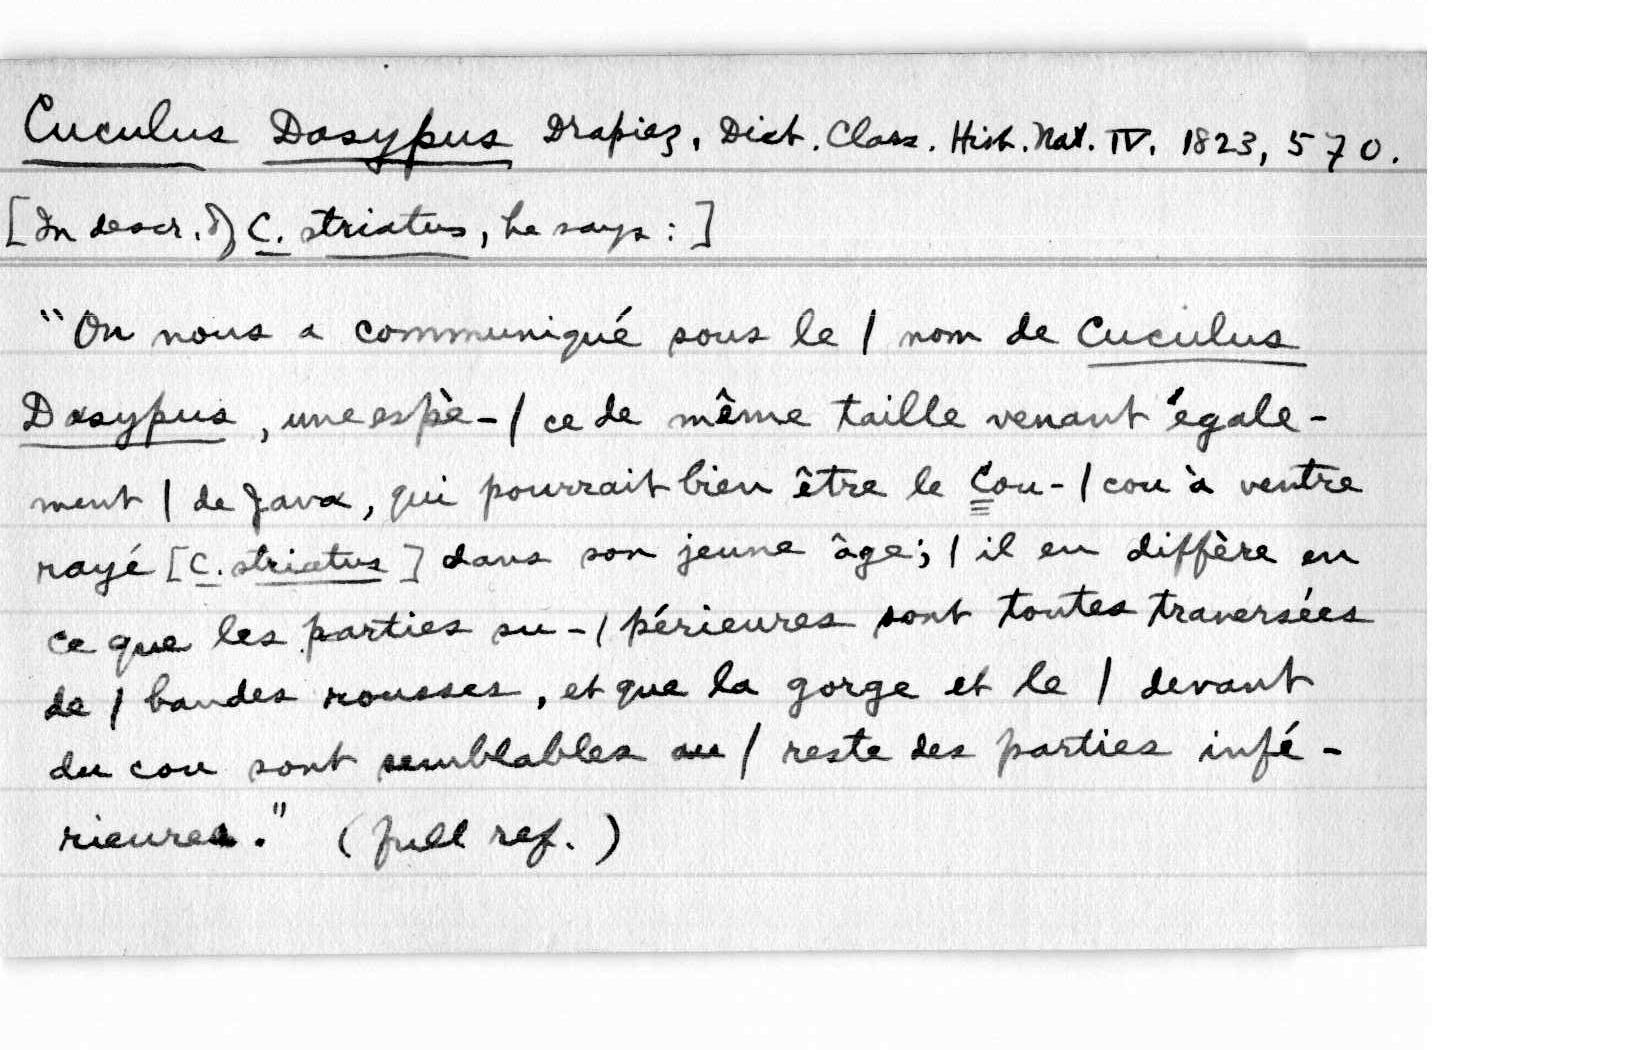 Cuculus Dasypus Drapiez, Dict. Class. Hist. Nat. IV. 1823, 570.
[In descr. of C. striatus, he says:]
"On nous a communiqué sous le / nom de Cuculus
Dasypus, une espè-/ce de même taille venant égale-
ment / de Java, qui pourrait bien être le Cou-/cou à ventre
rayé [C. striatus] dans son jeune âge; / il en diffère en
ce que les parties su-/périeures sont toutes traversées
de / bandes rousses, et que la gorge et le / devant
du cou sont semblables au / reste des parties infé-
rieures." (full ref.)